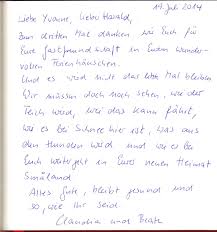 19. Juli 2014
Liebe Yvonne, liebe Harald,
zum dritten Mal danken wir Euch für
Eure Gastfreundschaft in Eurem wunder-
vollen Ferienhäuschen.
Und es wird nicht das letzte Mal bleiben
Wir müssen doch noch sehen, wie der
Teich wird, wer das kann fährt,
wie es bei Schnee hier ist, was aus
den Hunden wird und wie es bei
Euch weitergeht in Eurer neuen Heimat
Småland
Alles Gute, bleibt gesund und
so, wie Ihr seid.
Claudia und Beate